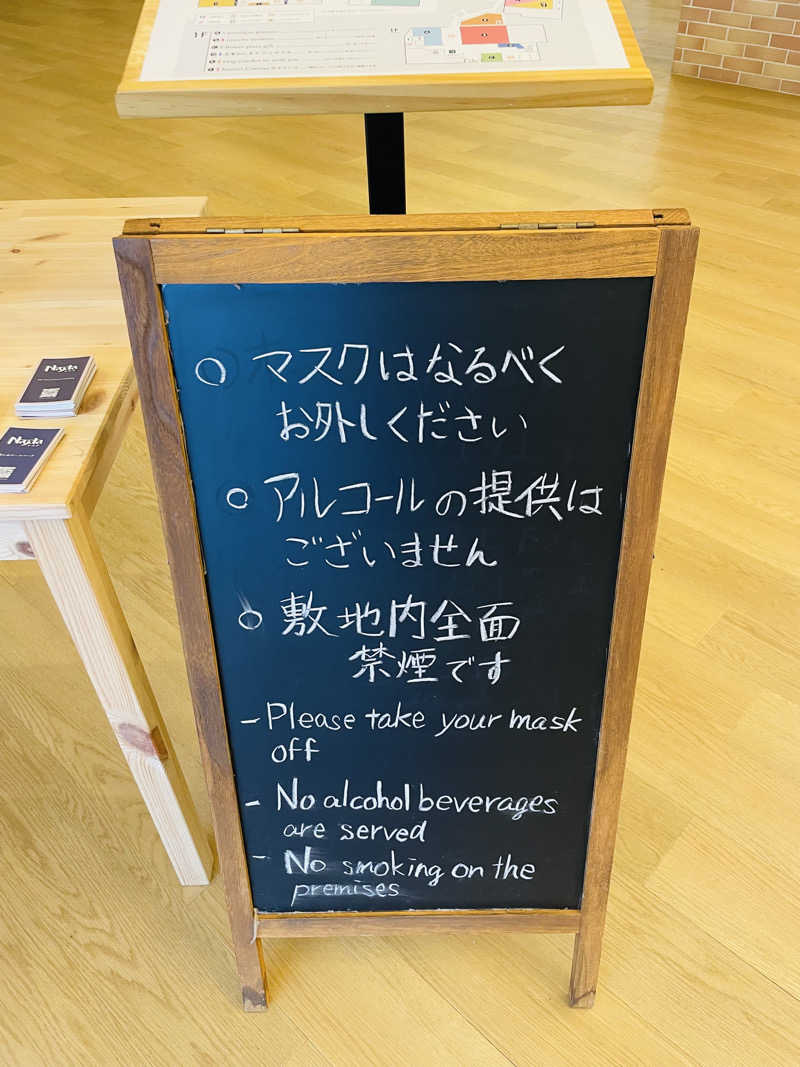 1F
1F
Nayuta
Nayuta
○ マスクはなるべく
お外しください
○ アルコールの提供は
ございません
○ 敷地内全面
禁煙です
- Please take your mask
off
- No alcohol beverages
are served
- No smoking on the
premises